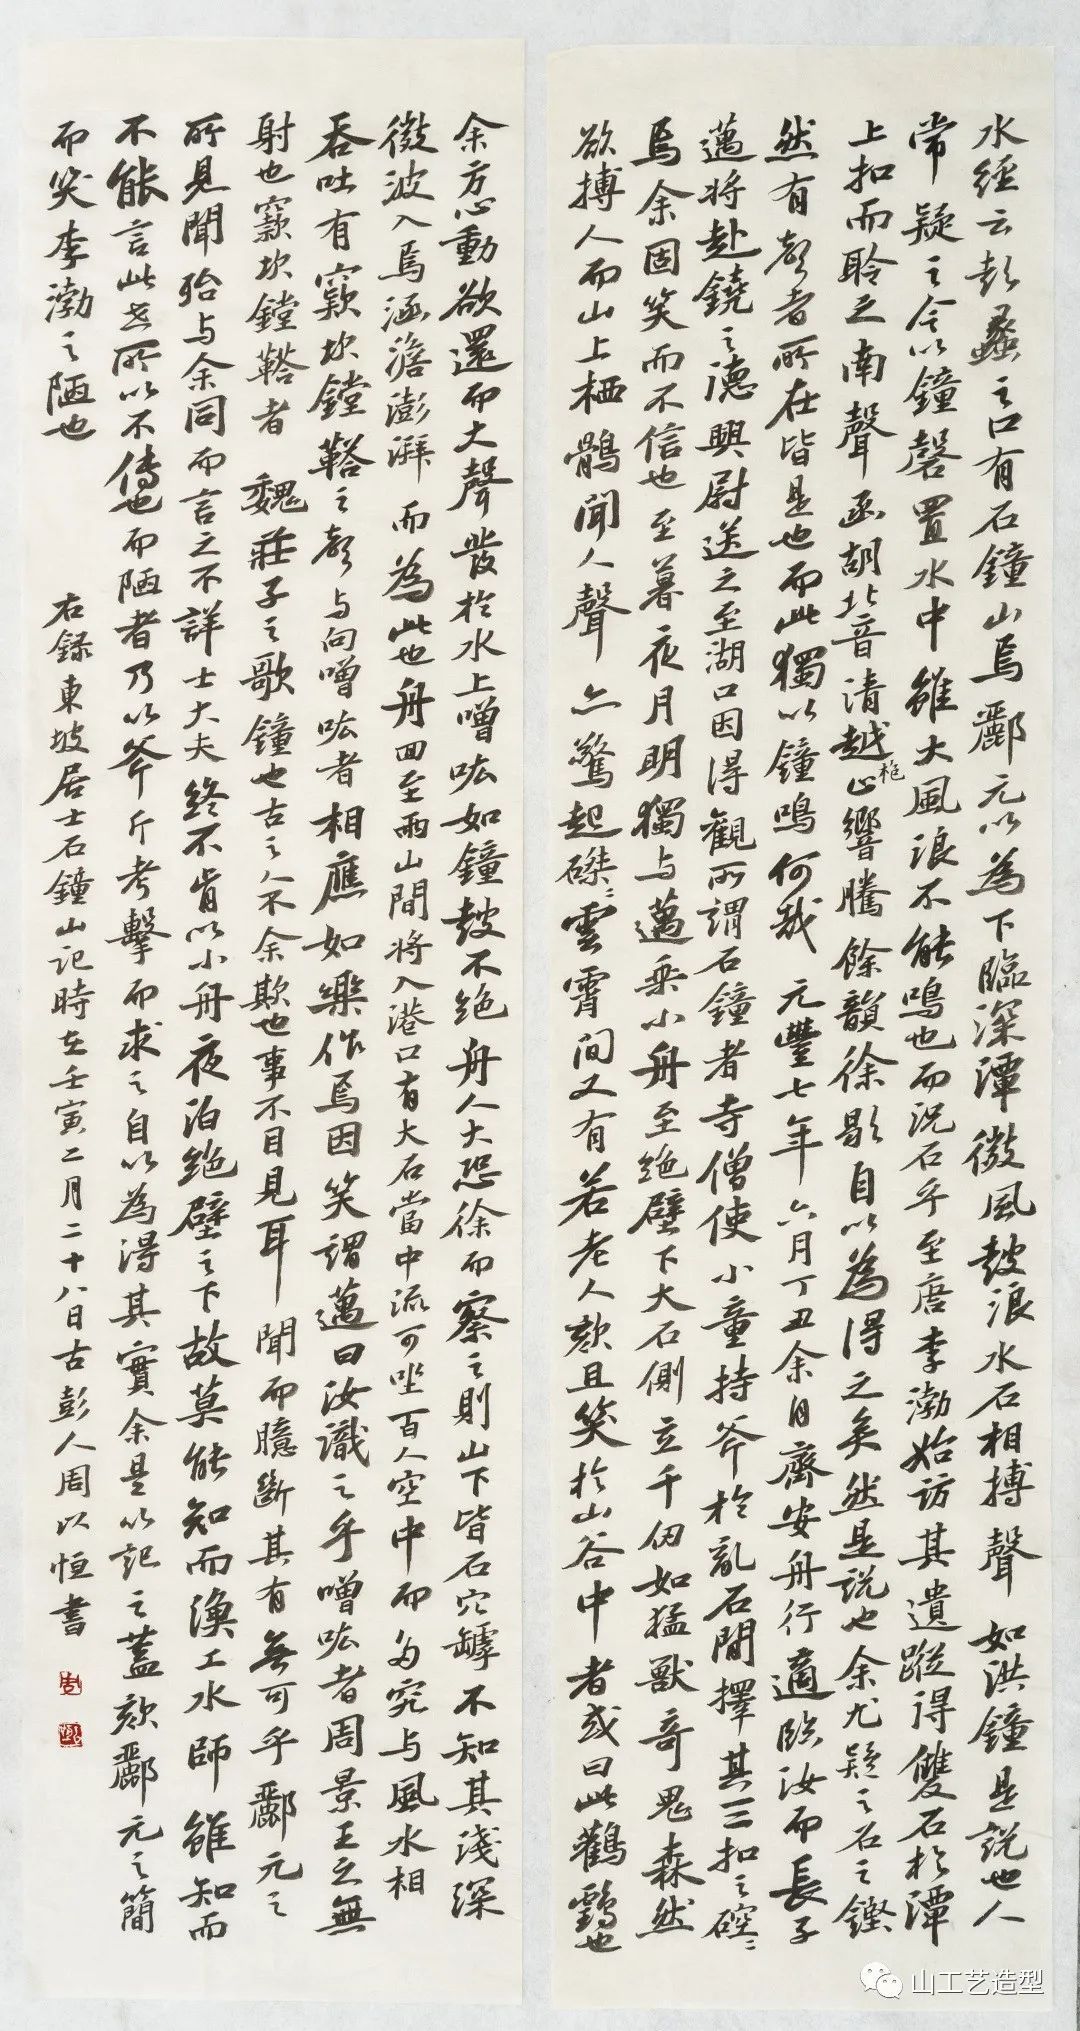 水經云彭蠡之口有石鐘山焉酈元以為下臨深潭微風鼓浪水石相搏聲如洪鐘是說也人
常疑之今以鐘磬置水中雖大風浪不能鳴也而況石乎至唐李渤始訪其遺蹤得雙石於潭
上扣而聆之南聲函胡北音清越枹止響騰餘韻徐歇自以為得之矣然是說也余尤疑之石之鏗
然有聲者所在皆是也而此獨以鐘鳴何哉元豐七年六月丁丑余自齊安舟行適臨汝而長子
邁將赴饒之德興尉送之至湖口因得觀所謂石鐘者寺僧使小童持斧於亂石間擇其一二扣之硿〻
焉余固笑而不信也至暮夜月明獨与邁乘小舟至絕壁下大石側立千仞如猛獸奇鬼森然
欲搏人而山上栖鶻聞人聲亦驚起磔〻雲霄间又有若老人欬且笑於山谷中者或曰此鸛鶴也
余方心動欲還而大聲發於水上噌吰如鐘鼓不絕舟人大恐徐而察之則山下皆石穴罅不知其淺深
微波入焉涵澹澎湃而為此也舟回至兩山間將入港口有大石當中流可坐百人空中而多竅与風水相
吞吐有窾坎鏜鞳之聲与向噌吰者相應如樂作焉因笑謂邁曰汝識之乎噌吰者周景王之無
射也窾坎鏜鞳者魏莊子之歌鐘也古之人不余欺也事不目見耳聞而臆斷其有無可乎酈元之
所見聞殆与余同而言之不詳士大夫終不肯以小舟夜泊絕壁之下故莫能知而漁工水師雖知而
不能言此世所以不傳也而陋者乃以斧斤考擊而求之自以為得其實余是以記之蓋歎酈元之簡
而笑李渤之陋也
右錄東坡居士石鐘山記時在壬寅二月二十八日古彭人周以恒書
山工艺造型